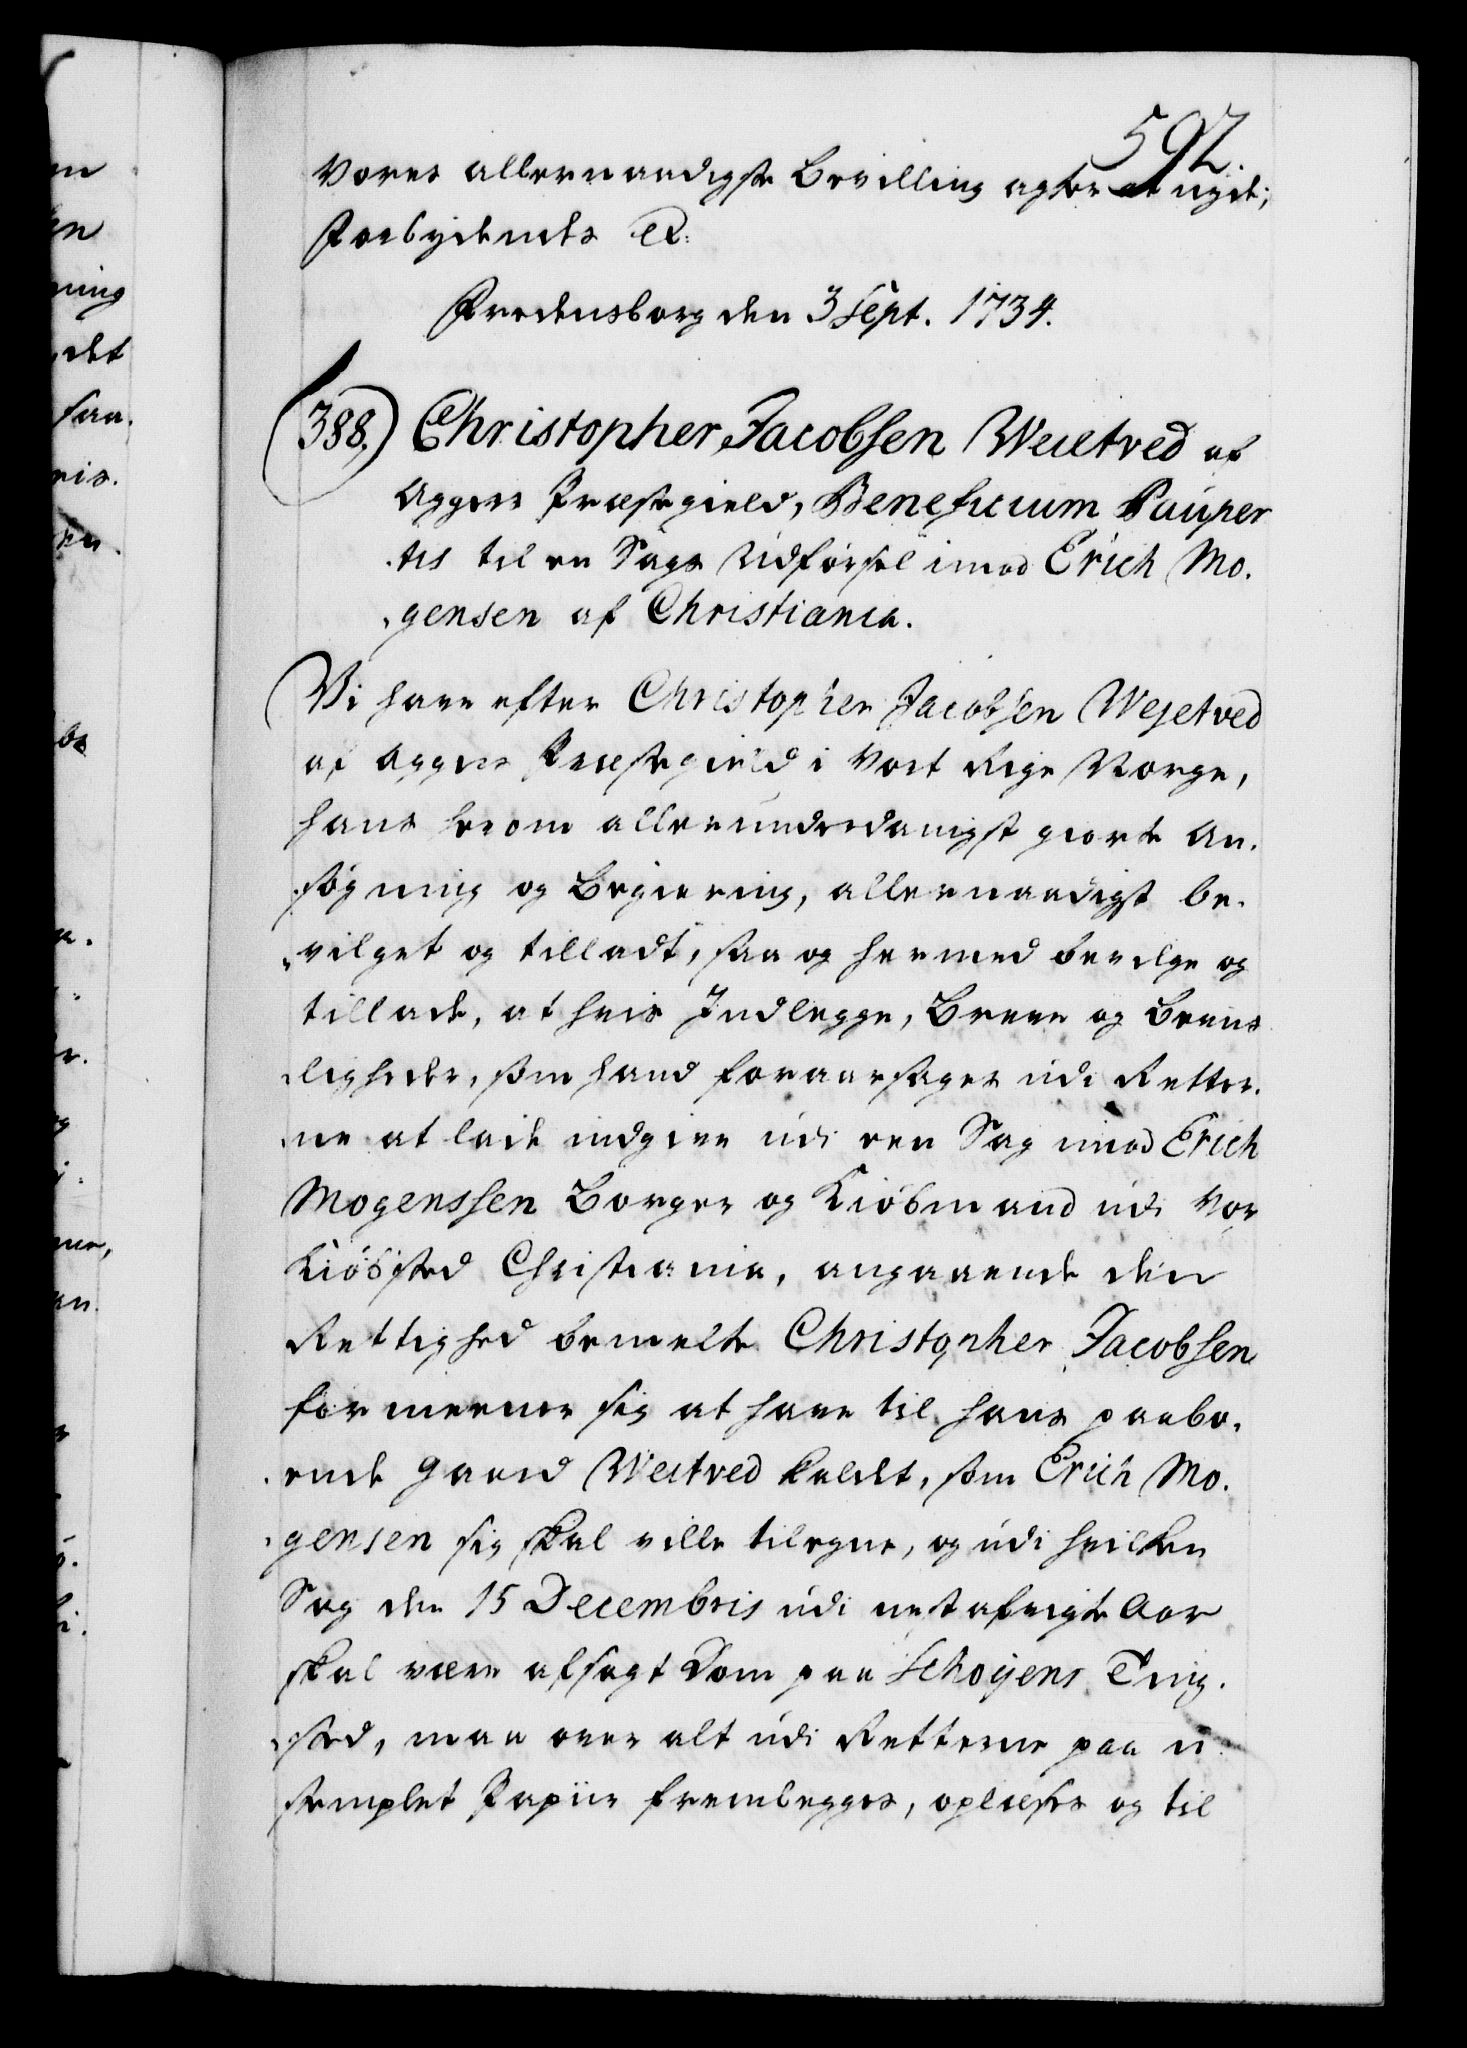 592.
Vores allernaadigste Bevilling agter at nyde;
Forbydendes etc:
Fredensborg den 3 Sept. 1734.
388.) Christopher Jacobsen Weietved af
Aggers Præstegield, Beneficium Pauper
tis til en Sags Udførsel imod Erich Mo.
gensen af Christiania.
Vi have efter Christopher Jacobsen Wejetved
af Aggers Præstegield i Vort Rige Norge,
hans herom allerunderdanigst giorte An.
søgning og Begiering, allernaadigst be.
vilget og tilladt, saa og hermed bevilge og
tillade, at hvis Indlegge, Breve og Beviis
ligheder, som hand foraarsages udi Retter.
ne at lade indgive udi een Sag imod Erich
Mogenssen Borger og Kiøbmand udi Vor
Kiøbsted Christiania, angaaende den
Rettighed bemelte Christopher Jacobsen
formeener sig at have til hans paabo.
ende Gaard Weitved kaldt, som Erich Mo.
gensen sig skal ville tilegne, og udi hvilken
Sag den 15 Decembris udi nestafvigte Aar
skal være afsagt Dom paa Schøyens Ting.
sted, maa over alt udi Retterne paa u.
stemplet Papiir fremlegges, oplæses og til